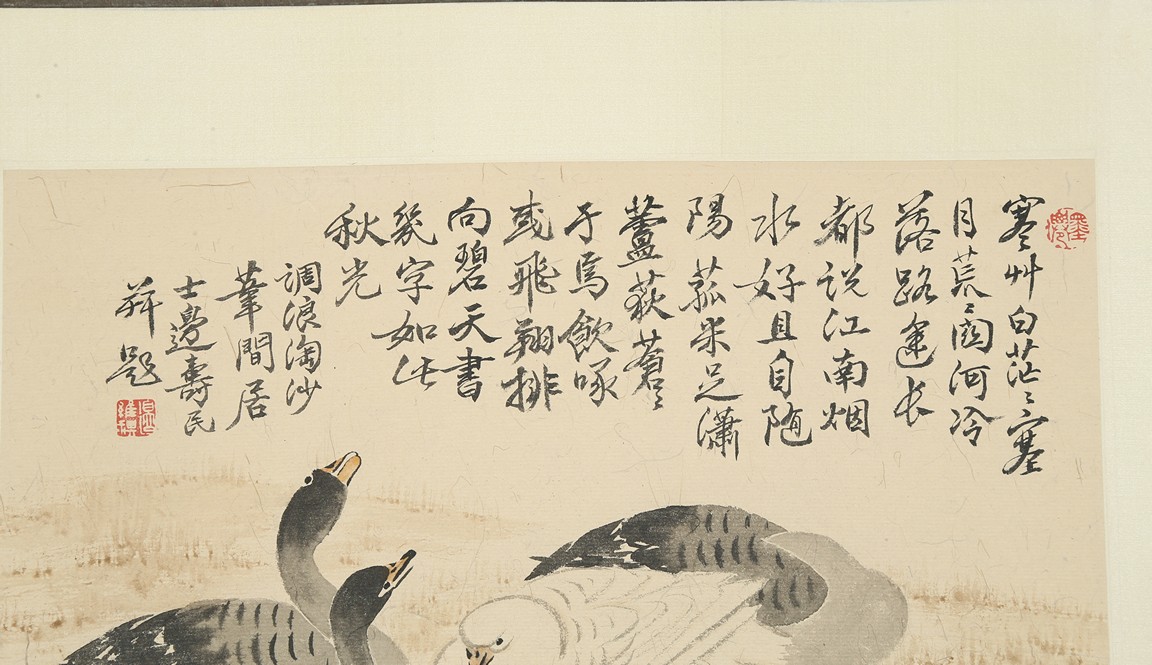 寒艸白茫〻塞
月荒〻関河冷
落路途长
都説江南烟
水好且自随
陽菰米足瀟
蘆荻蒼〻
于焉飲啄
或飛翔排
向碧天書
幾字如此
秋光
調浪淘沙
葦間居
士邊壽民
并題